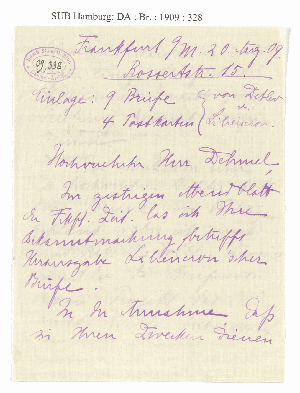 SUB Hamburg: DA : Br. : 1909 : 328
09.328
Frankfurt a/M. 20. Aug. 09
Rossertstr. 15.
Einlage: 9 Briefe } von Detlev
4 Postkarten } v. Liliencron.
Hochverehrter Herr Dehmel,
Im gestrigen Abendblatt
der Frkft. Zeit. las ich Ihre
Bekanntmachung betreffs
Herausgabe Liliencron'scher
Briefe.
In der Annahme daß
sie Ihren Zwecken dienen